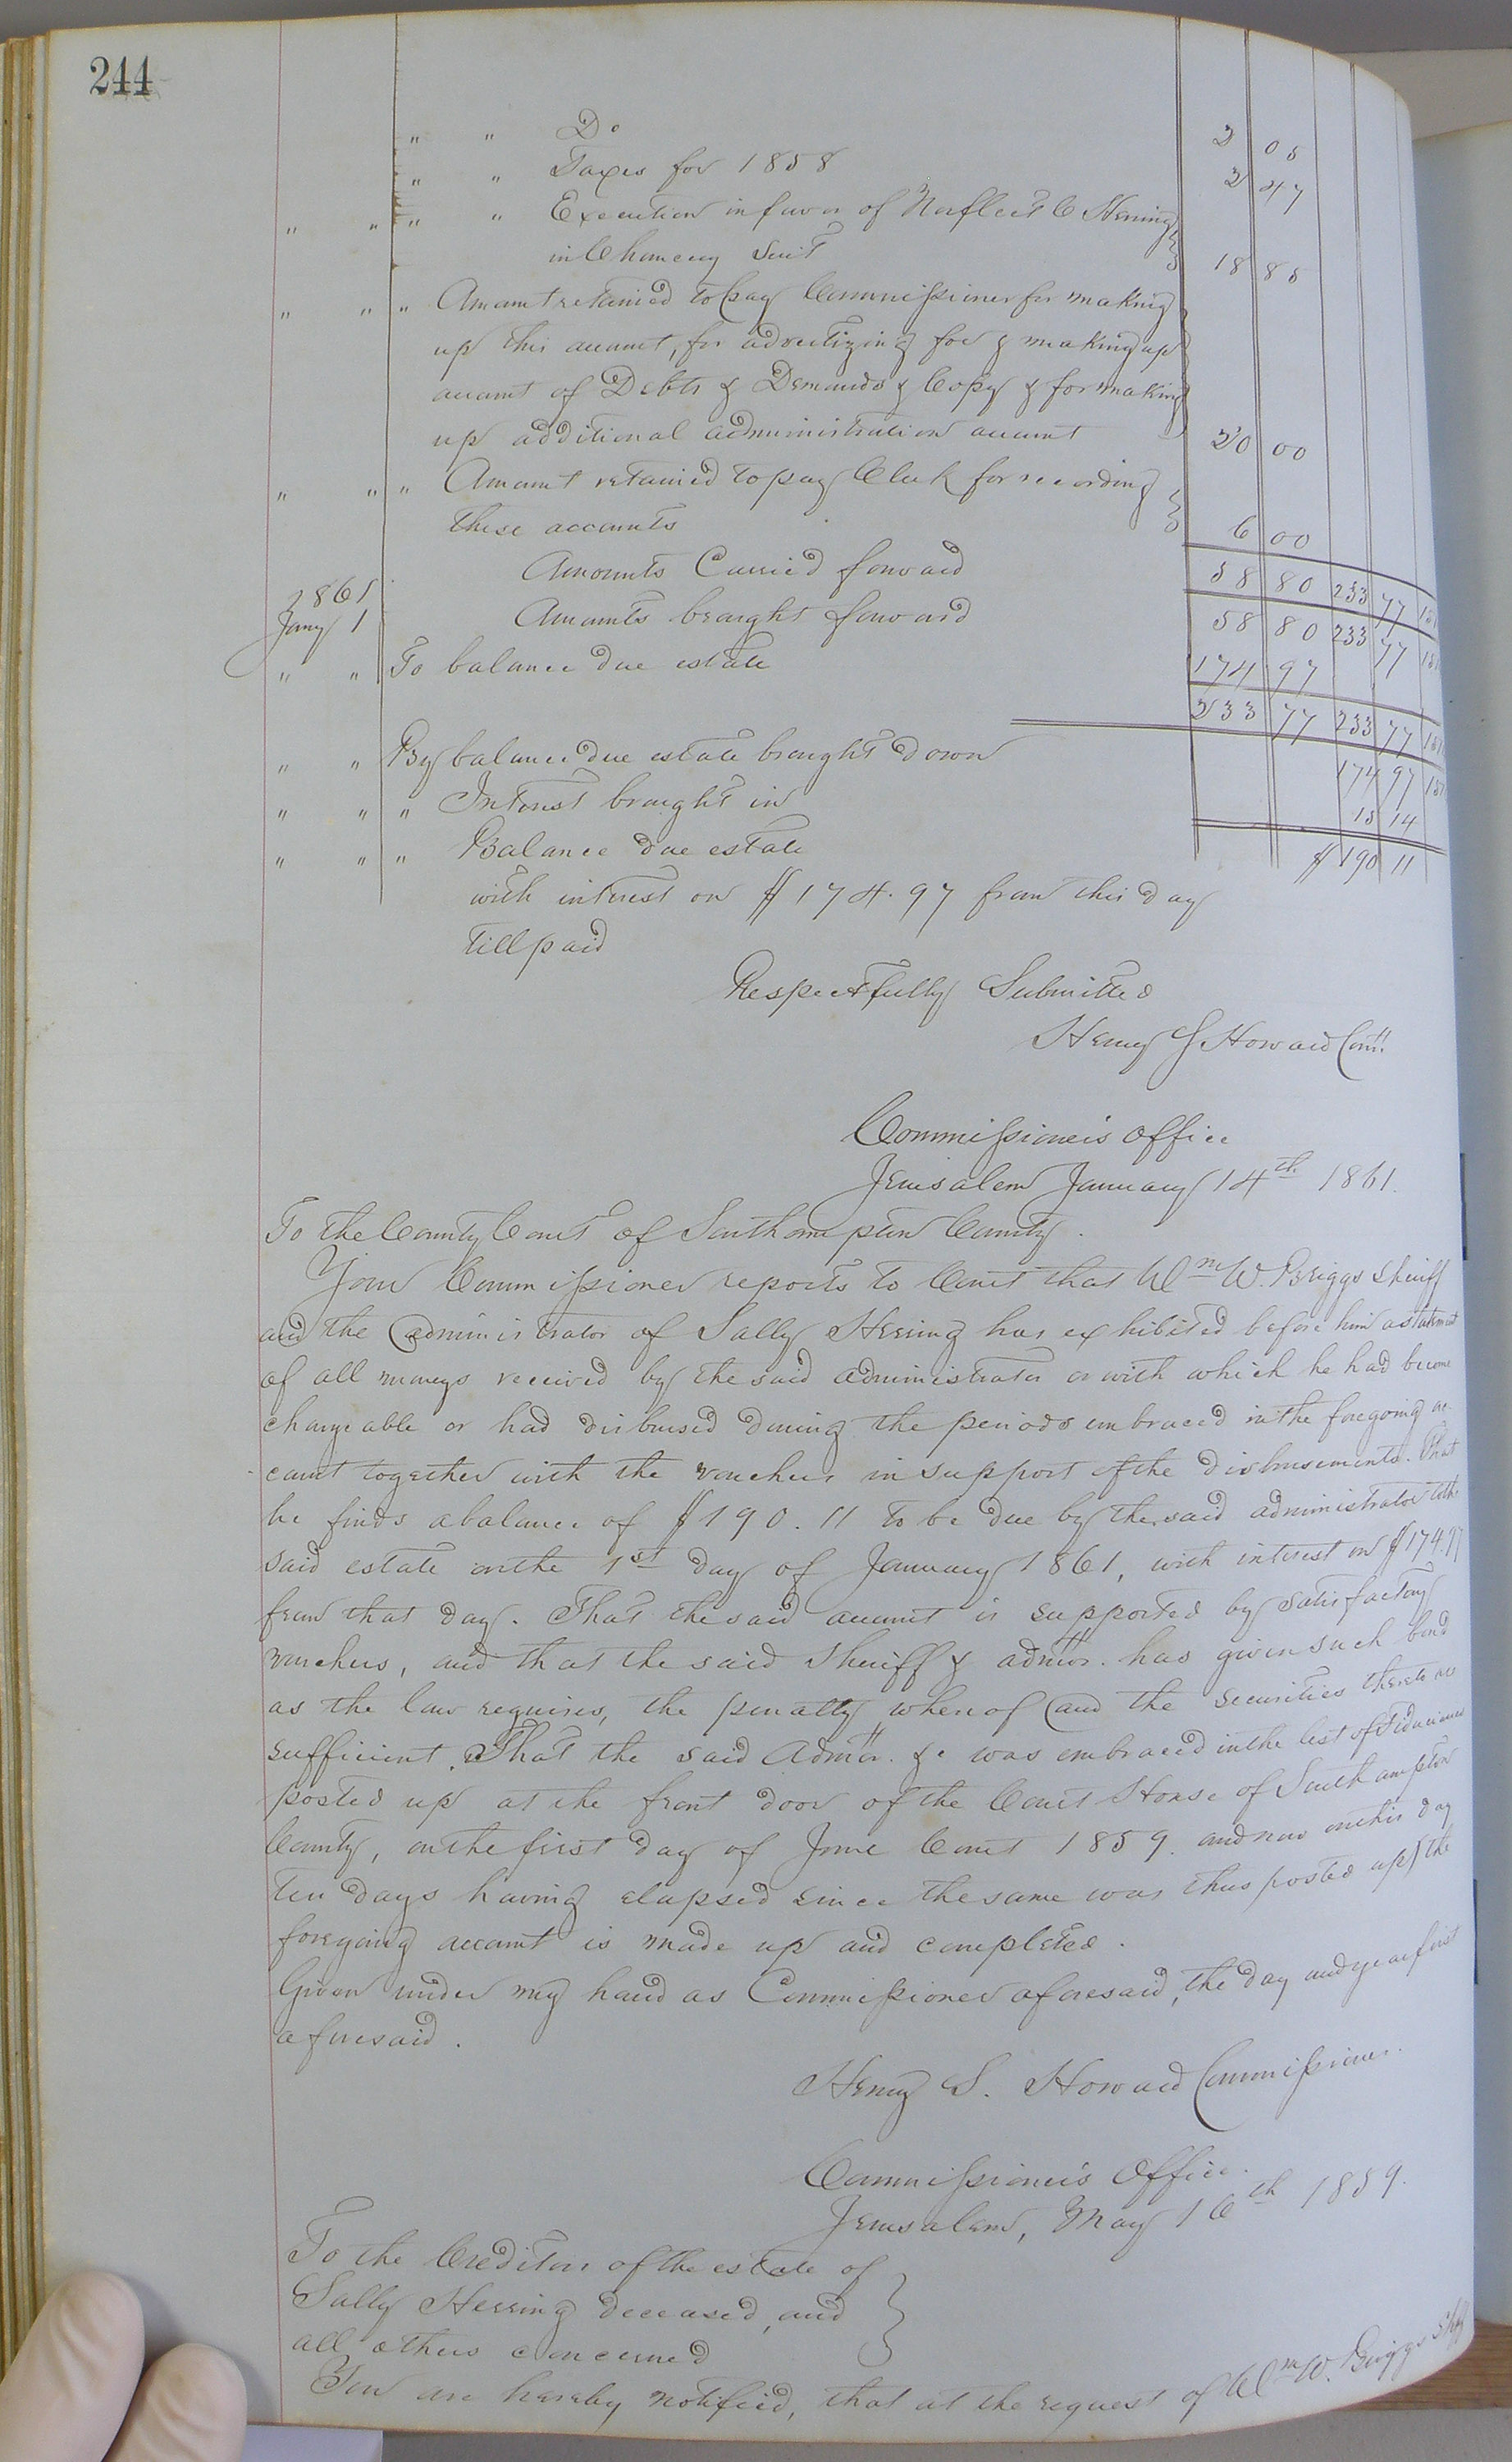 244
" " Do 2 05
" " Taxes for 1858 2 47
" " " " Execution in favor of Norfleet C Herring
in Chancery Suit 18 88
" " " Amount retained to pay Commissioner for making
up this account, for advertizing for & making up
account of Debts & Demands & Copy & for making
up additional administration account 20 00
" " " Amount retained to pay Clerk for recording
these accounts 6 00
Amounts Carried forward 58 80 233 77
1861
Jany 1 Amounts brought forward 58 80 233 77
" " To balance due estate 174 97
233 77 233 77
" " By balance due estate brought down 174 97
" " " Interest brought in 15 14
" " " Balance due estate $ 190 11
with interest on $174.97 from this day
till paid
Respectfully Submitted
Henry S Howard Comr.
Commissioner's Office
Jerusalem January 14th 1861.
To the County Court of Southampton County.
Your Commissioner reports to Court that Wm W. Briggs Sheriff
and the administrator of Sally Herring has exhibited before him a statement
of all moneys received by the said administrator or with which he had become
chargeable or had disbursed during the periods embraced in the foregoing ac-
count together with the vouchers in support of the disbursements. That
he finds a balance of $190.11 to be due by the said administrator to the
said estate on the 1st day of January 1861, with interest on $174.97
from that day. That the said account is supported by satisfactory
vouchers, and that the said Sheriff & admor. has given such bond
as the law requires, the penalty whereof and the securities thereto are
sufficient. That the said Admor. &c was embraced in the list of Fiduciaries
posted up at the front door of the Court House of Southampton
County, on the first day of June Court 1859. and now on this day
ten days having elapsed since the same was thus posted up, the
foregoing account is made up and completed.
Given under my hand as Commissioner aforesaid, the day and year first
aforesaid.
Henry S. Howard Commissioner.
Commissioner's Office.
Jerusalem, May 16th 1859.
To the Creditors of the estate of
Sally Herring deceased, and
all others concerned
You are hereby notified, that at the request of Wm W. Briggs Shff